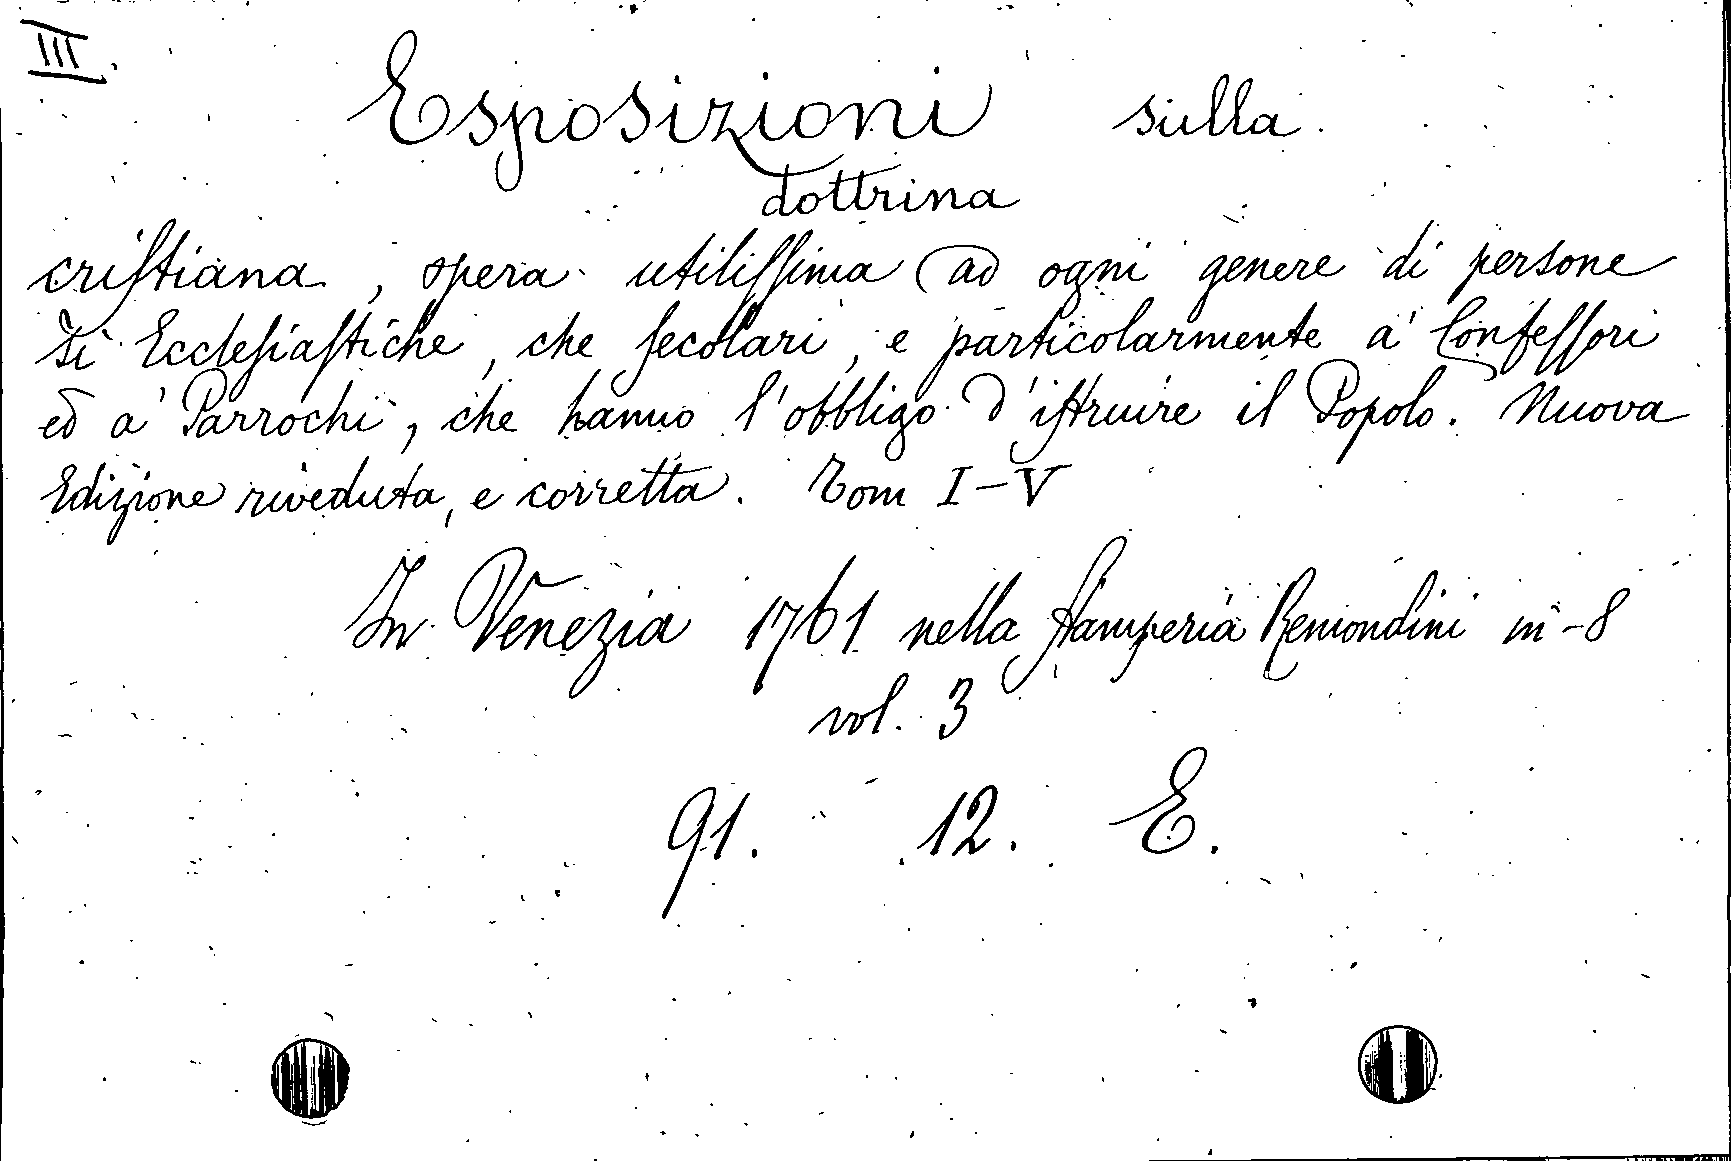 III.
Esposizioni sulla
dottrina
criſtiana, opera utiliſſima ad ogni genere di persone
sì Eccleſiaſtiche, che ſecolari, e particolarmente a' Confeſſori
ed a' Parrochi, che hanno l'obbligo d'iſtruire il Popolo. Nuova
Edizione riveduta, e corretta. Tom I-V
In Venezia 1761 nella ſtamperia Remondini in-8
vol. 3
91. 12. E.